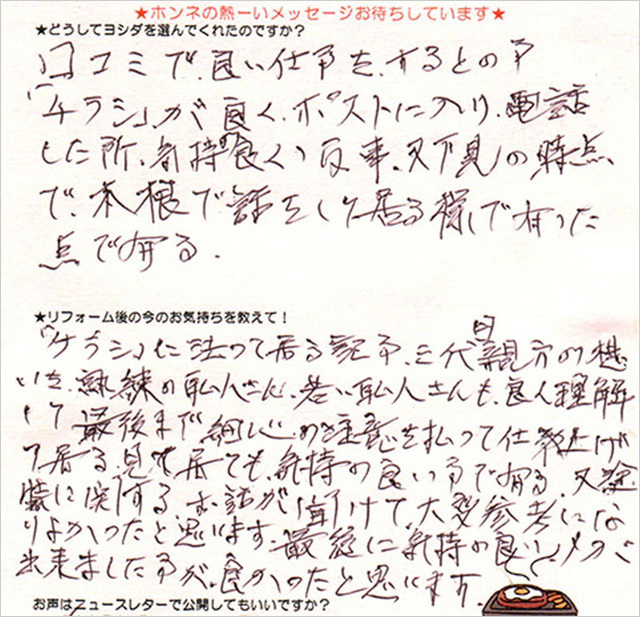 ★ホンネの熱ーいメッセージお待ちしています★
★どうしてヨシダを選んでくれたのですか？
口コミで、良い仕事を、するとの事
「チラシ」が良く、ポストに入り、電話
した所、気持の良く、返事、又下見の時点
で、本根で話をして居る様で有った
点で有る.
★リフォーム後の今のお気持ちを教えて！
「チラシ」に法って居る記事、三代目親方の想
いを、熟練の職人さん、若い職人さんも、良く理解
して最後まで細心の注意を払って仕上げ
て居る、見て居ても、気持の良い事で有る、又塗
装に関する、お話が聞けて、大変参考にな
りよかったと思います。最後に気持の良い
出来ました事が、良かったと思います.
お声はニュースレターで公開してもいいですか？